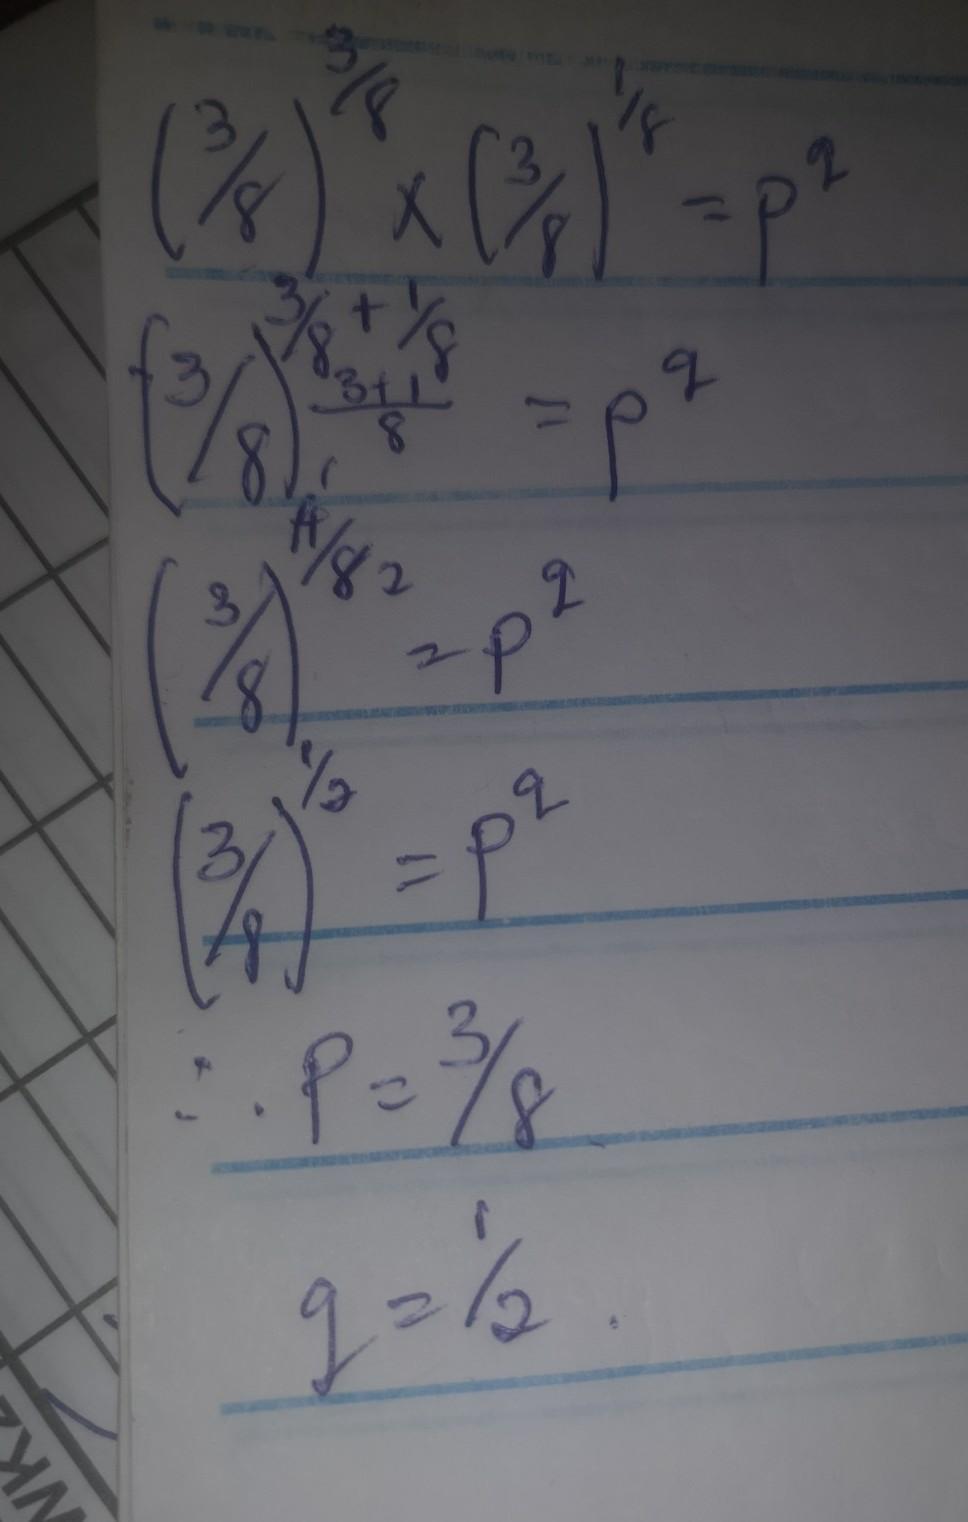 (3/8)^3/8 × (3/8)^1/8 = p^q
(3/8)^3/8 + 1/8
3+1/8 = p^q
(3/8)^4/8 1 2 = p^q
(3/8)^1/2 = p^q
∴ P = 3/8
q = 1/2.